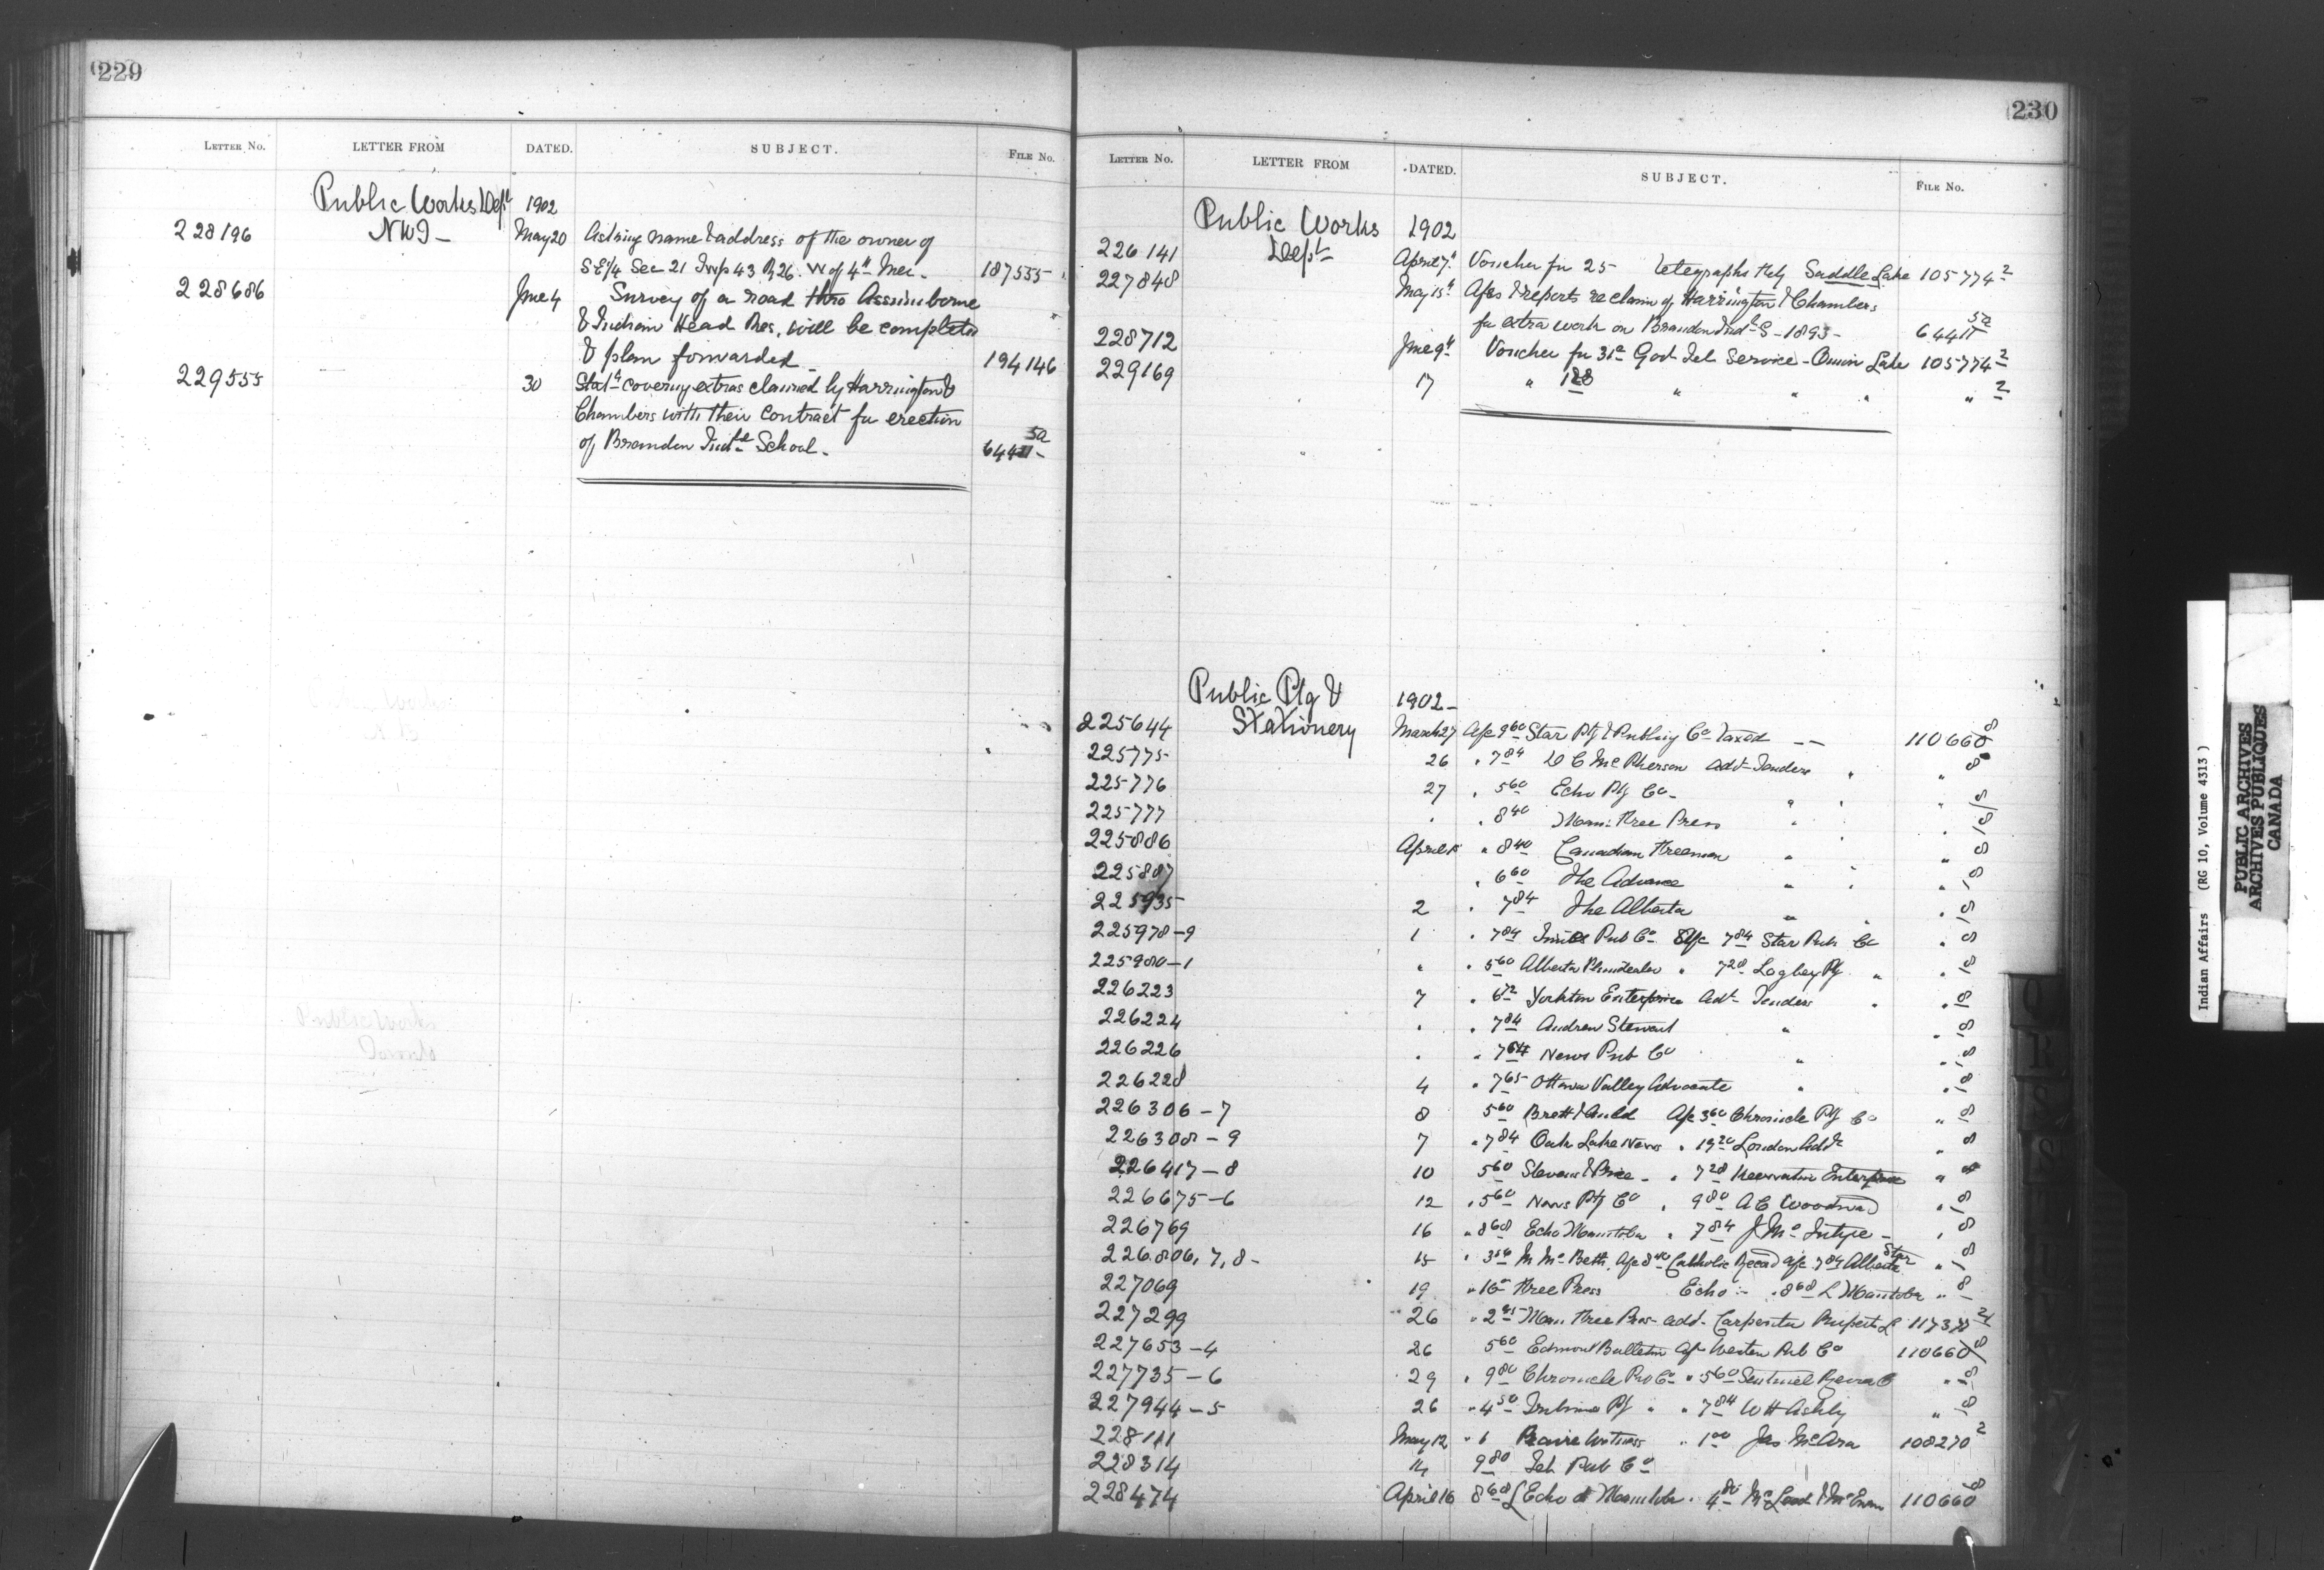 229
LETTER No. LETTER FROM DATED. SUBJECT. FILE No.
Public Works Dept 1902
228196 NWT - May 20 Asking name & address of the owner of
SE 1/4 Sec 21 Twp 43 R 26 W of 4th Mer - 187535
228686 June 4 Survey of a road thro Assiniboine
& Indian Head Res. will be completed
& plan forwarded - 194146
229555 30 Statt covering extras claimed by Harrington &
Chambers with their contract for erection
of Brandon Indl School -
230
LETTER No. LETTER FROM DATED. SUBJECT. FILE No.
Public Works 1902
226141 Dept April 7th Voucher for 25 telegraphs Saddle Lake 105774 2
227848 May 15th reports re claim of Harrington & Chambers
for extra work on Brandon Indl S - 1893 -
228712 June 9th Voucher for 31c Govt Tel Service - Onion Lake 105774 2
229169 17 " 128 " " " " 2
Public Ptg & 1902 -
225644 Stationery March 27 A/c 9 60 Star Ptg & Publing Co Taxed - - 110660 8
225775 26 " 7 84 McPherson Advt Tenders " " 8
225776 27 " 5 60 Echo Ptg Co - " " " 8
225777 " " 8 40 Man: Free Press " " " 8
225886 April " 8 40 Canadian Freeman " " " 8
225887 " 6 60 The Advance " " " 8
225935 2 " 7 84 The Alberta " " 8
225978-9 1 " 7 84 Pub Co 7 84 Star Pub Co " 8
225980-1 " " 5 60 Alberta Plaindealer " 7 28 Ptg " " 8
226223 7 " 6 72 Yorkton Enterprise Advt Tenders " " 8
226224 " " 7 84 Andrew Stewart " " 8
226226 " " News Pub Co " " 8
226228 4 " 7 65 Ottawa Valley Advocate " " 8
226306-7 8 5 60 Brett & Auld A/c 3 60 Chronicle Ptg Co " 8
226308-9 7 " 7 84 Oak Lake News " London Advt " 8
226417-8 10 5 60 Stevens & - " 7 28 Enterprise " 8
226675-6 12 " 5 60 News Ptg Co " 9 80 A C Woodward " 8
226769 16 " 8 68 Echo Manitoba " 7 84 J McIntyre - " 8
226.806,7,8- 15 " M McBeth, A/c Catholic Record a/c 7 84 Alberta Star " 8
227069 19 " Free Press Echo - " 8 68 L Manitoba " 8
227299 26 " Man Free Press - advt - Carpenter Ruperts L
227653-4 26 5 60 Edmont Bulletin A/c Western Pub Co 110660 8
227735-6 29 " 9 80 Chronicle Pub Co " 5 60 Sentinel Review " 8
227944-5 26 " 4 50 Tribune Ptg " " 7 84 W H Ashley " 8
228111 May 12 " 1 Prairie Witness " 1 00 Jas McAra 108270 2
228314 14 9 80 Tel Pub Co
228474 April 16 8 68 L Echo de Manitoba " 4 80 McLeod & McEwen 110660 8
Indian Affairs (RG 10, Volume 4313)
PUBLIC ARCHIVES
ARCHIVES PUBLIQUES
CANADA